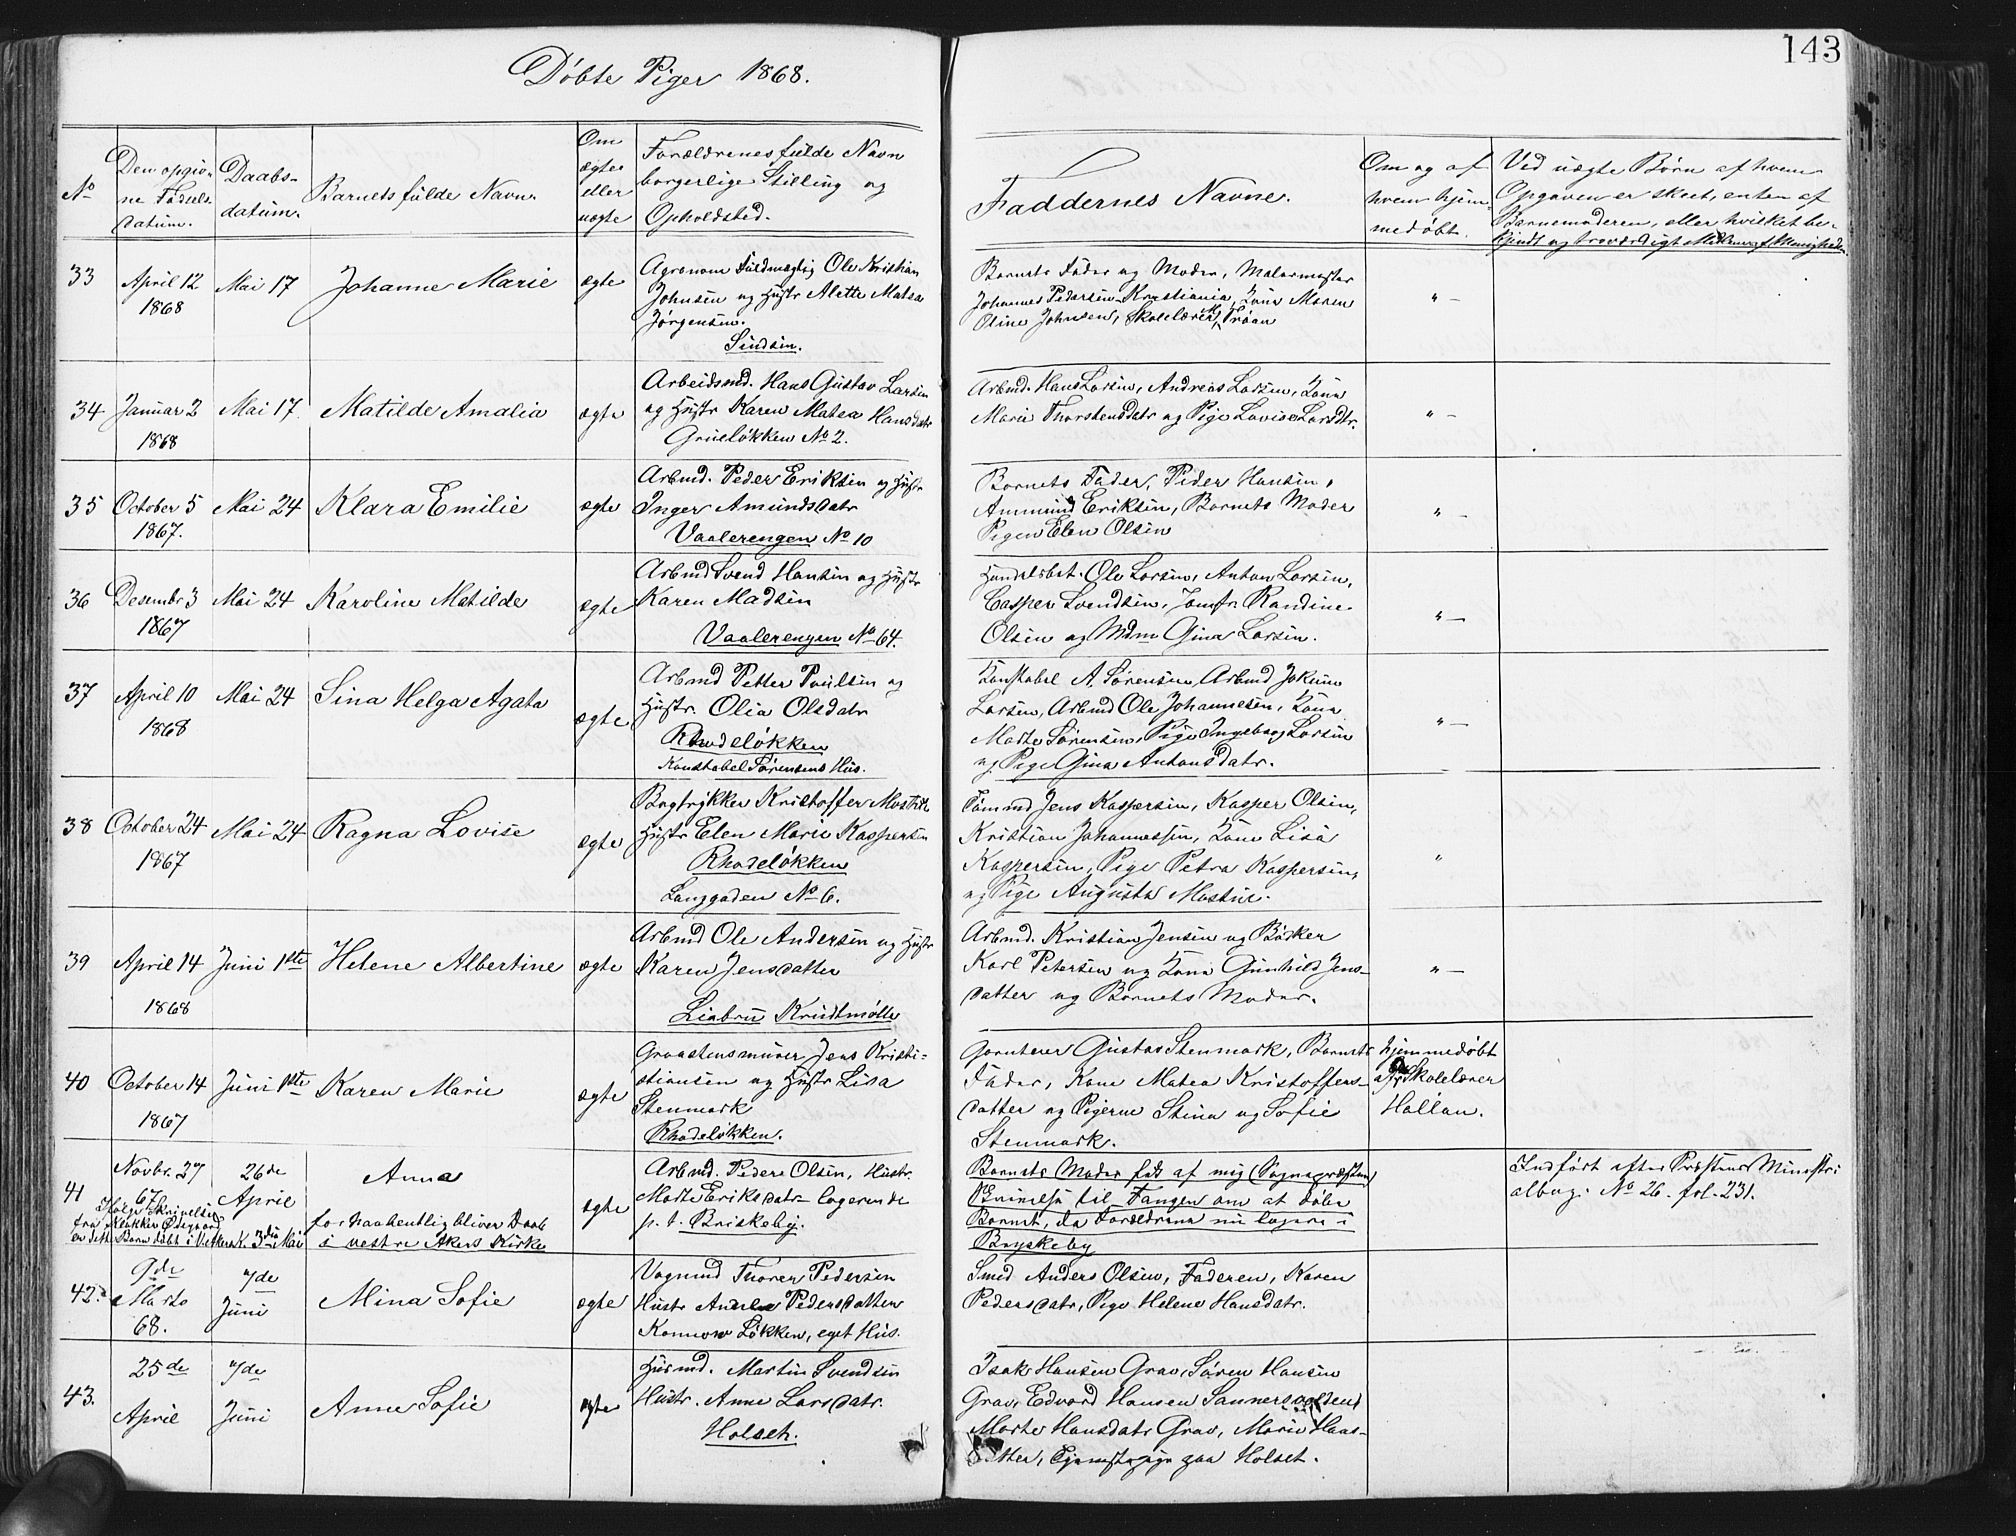 143
Döbte Piger 1868.
No
Den opgiv-
ne Födsels-
datum.
Daabs-
datum.
Barnets fulde Navn.
Om
ægte
eller
uægte
Forældrenes fulde Navn
borgerlige Stilling og
Opholdsted.
Faddernes Navne.
Om og af
hvem hjem-
medöbt.
Ved uægte Börn af hvem
Opgaven er skeet, enten af
Barnemoderen, eller hvilket be-
kjendt og troværdigt Medlem af Menigheden
33
April 12
1868
Mai 17
Johanne Marie
ægte
Agronom Fuldmægtig Ole Kristian
Johnsen og Hustr Alette Matea
Jörgensen.
Sindsen.
Barnets Fader og Moder, Malermester
Johannes Pedersen Kristiania, Kone Maren
Oline Johnsen, Skolelærer M. Tröan
" —
34
Januar 2
1868
Mai 17.
Matilde Amalia
ægte
Arbeidsmd. Hans Gustav Larsen
og Hustr Karen Matea Hansdatr
Grüneløkken No 2.
Arbmd. Hans Larsen, Andreas Larsen, Kone
Marie Thorstensdatr og Pige Lovise Larsdtr.
" —
35
October 5
1867.
Mai 24
Klara Emilie
ægte
Arbmd. Peder Eriksen og Hustr
Inger Amundsdatr
Vaalerengen No 10
Barnets Fader, Peder Hansen,
Ammund Eriksen, Barnets Moder
Pigen Elen Olsen
" —
36
Desembr 3
1867
Mai 24
Karoline Matilde
ægte
Arbmd Svend Hansen og Hustr
Karen Madsen
Vaalerengen No 64.
Handelsbet. Ole Larsen, Anton Larsen,
Casper Svendsen, Jomfr. Randine
Olsen og Mdm Gina Larsen.
" —
37
April 10
1868
Mai 24
Sina Helga Agata
ægte
Arbmd Petter Poulsen og
Hustr. Olia Olsdatr
Rhodeløkken
Konstabel Sörensens Hus.
Konstabel A. Sörensen, Arbmd Jokum
Larsen, Arbmd Ole Johannesen, Kone
Marte Sörensen, Pige Ingeborg Larsen
og Pige Gina Antonsdatr.
" —
38
October 24
1867
Mai 24
Ragna Lovise
ægte
Bogtrykker Kristoffer
Hustr Elen Marie Kaspersen
Rhodeløkken
Langgaden No 6.
Tömmd Jens Kaspersen, Kasper Olsen,
Kristian Johannessen, Kone Lisa
Kaspersen, Pige Petra Kaspersen,
og Pige Augusta
"
39
April 14
1868
Juni 1ste
Helene Albertine
ægte
Arbmd Ole Andersen og Hustr
Karen Jensdatter
Liabru Krudtmølle
Arbmd. Kristian Jensen og Böcker
Karl Petersen og Kone Gunhild Jens-
datter og Barnets Moder.
" —
40
October 14
1867
Juni 1ste
Karen Marie
ægte
Graastensmurer Jens Kristi-
ansen og Hustr Lisa
Stenmark
Rhodeløkken.
Garnterer Gustav Stenmark, Barnets
Fader, Kone Matea Kristoffers-
datter og Pigerne Stina og Sofie
Stenmark.
hjemmedöbt
af Skolelærer
Hallan.
41
Novbr. 27
67
Ifølge Skrivelse
fra Klokker Ødegaard
er dette Barn døbt i V. Aker K. 3die Mai
26de
April
Anna
forhaabentlig bliver Daab
i vestre Akers Kirke
ægte
Arbmd. Peder Olsen, Hustr.
Marte Eriksdatr logerende
p. t. Briskeby.
Barnets Moder fik af mig (Sognepræsten)
Bevilelse til Fangen om at døbe
Barnet, da Forældrene nu logere i
Bryskeby
Indfört efter Præstens Ministeri
albog. No 26. fol. 231.
42.
9de
Marts
68.
7de
Juni
Mina Sofie
ægte
Vognmd Thorer Pedersen
Hustr Andrea Pedersdatter
Kannow Løkken, eget Hus.
Smed Anders Olsen, Faderen, Karen
Pedersdatr, Pige Helene Hansdatr.
43.
25de
April
7de
Juni
Anne Sofie
ægte
Husmd. Martin Svendsen
Hustr. Anne Larsdatr.
Holseth.
Isak Hansen Grav, Sören Hansen
Grav, Edvard Hansen Sannersvolden
Marte Hansdatr Grav, Marie Hans-
datter, Tjenestepige paa Holset.